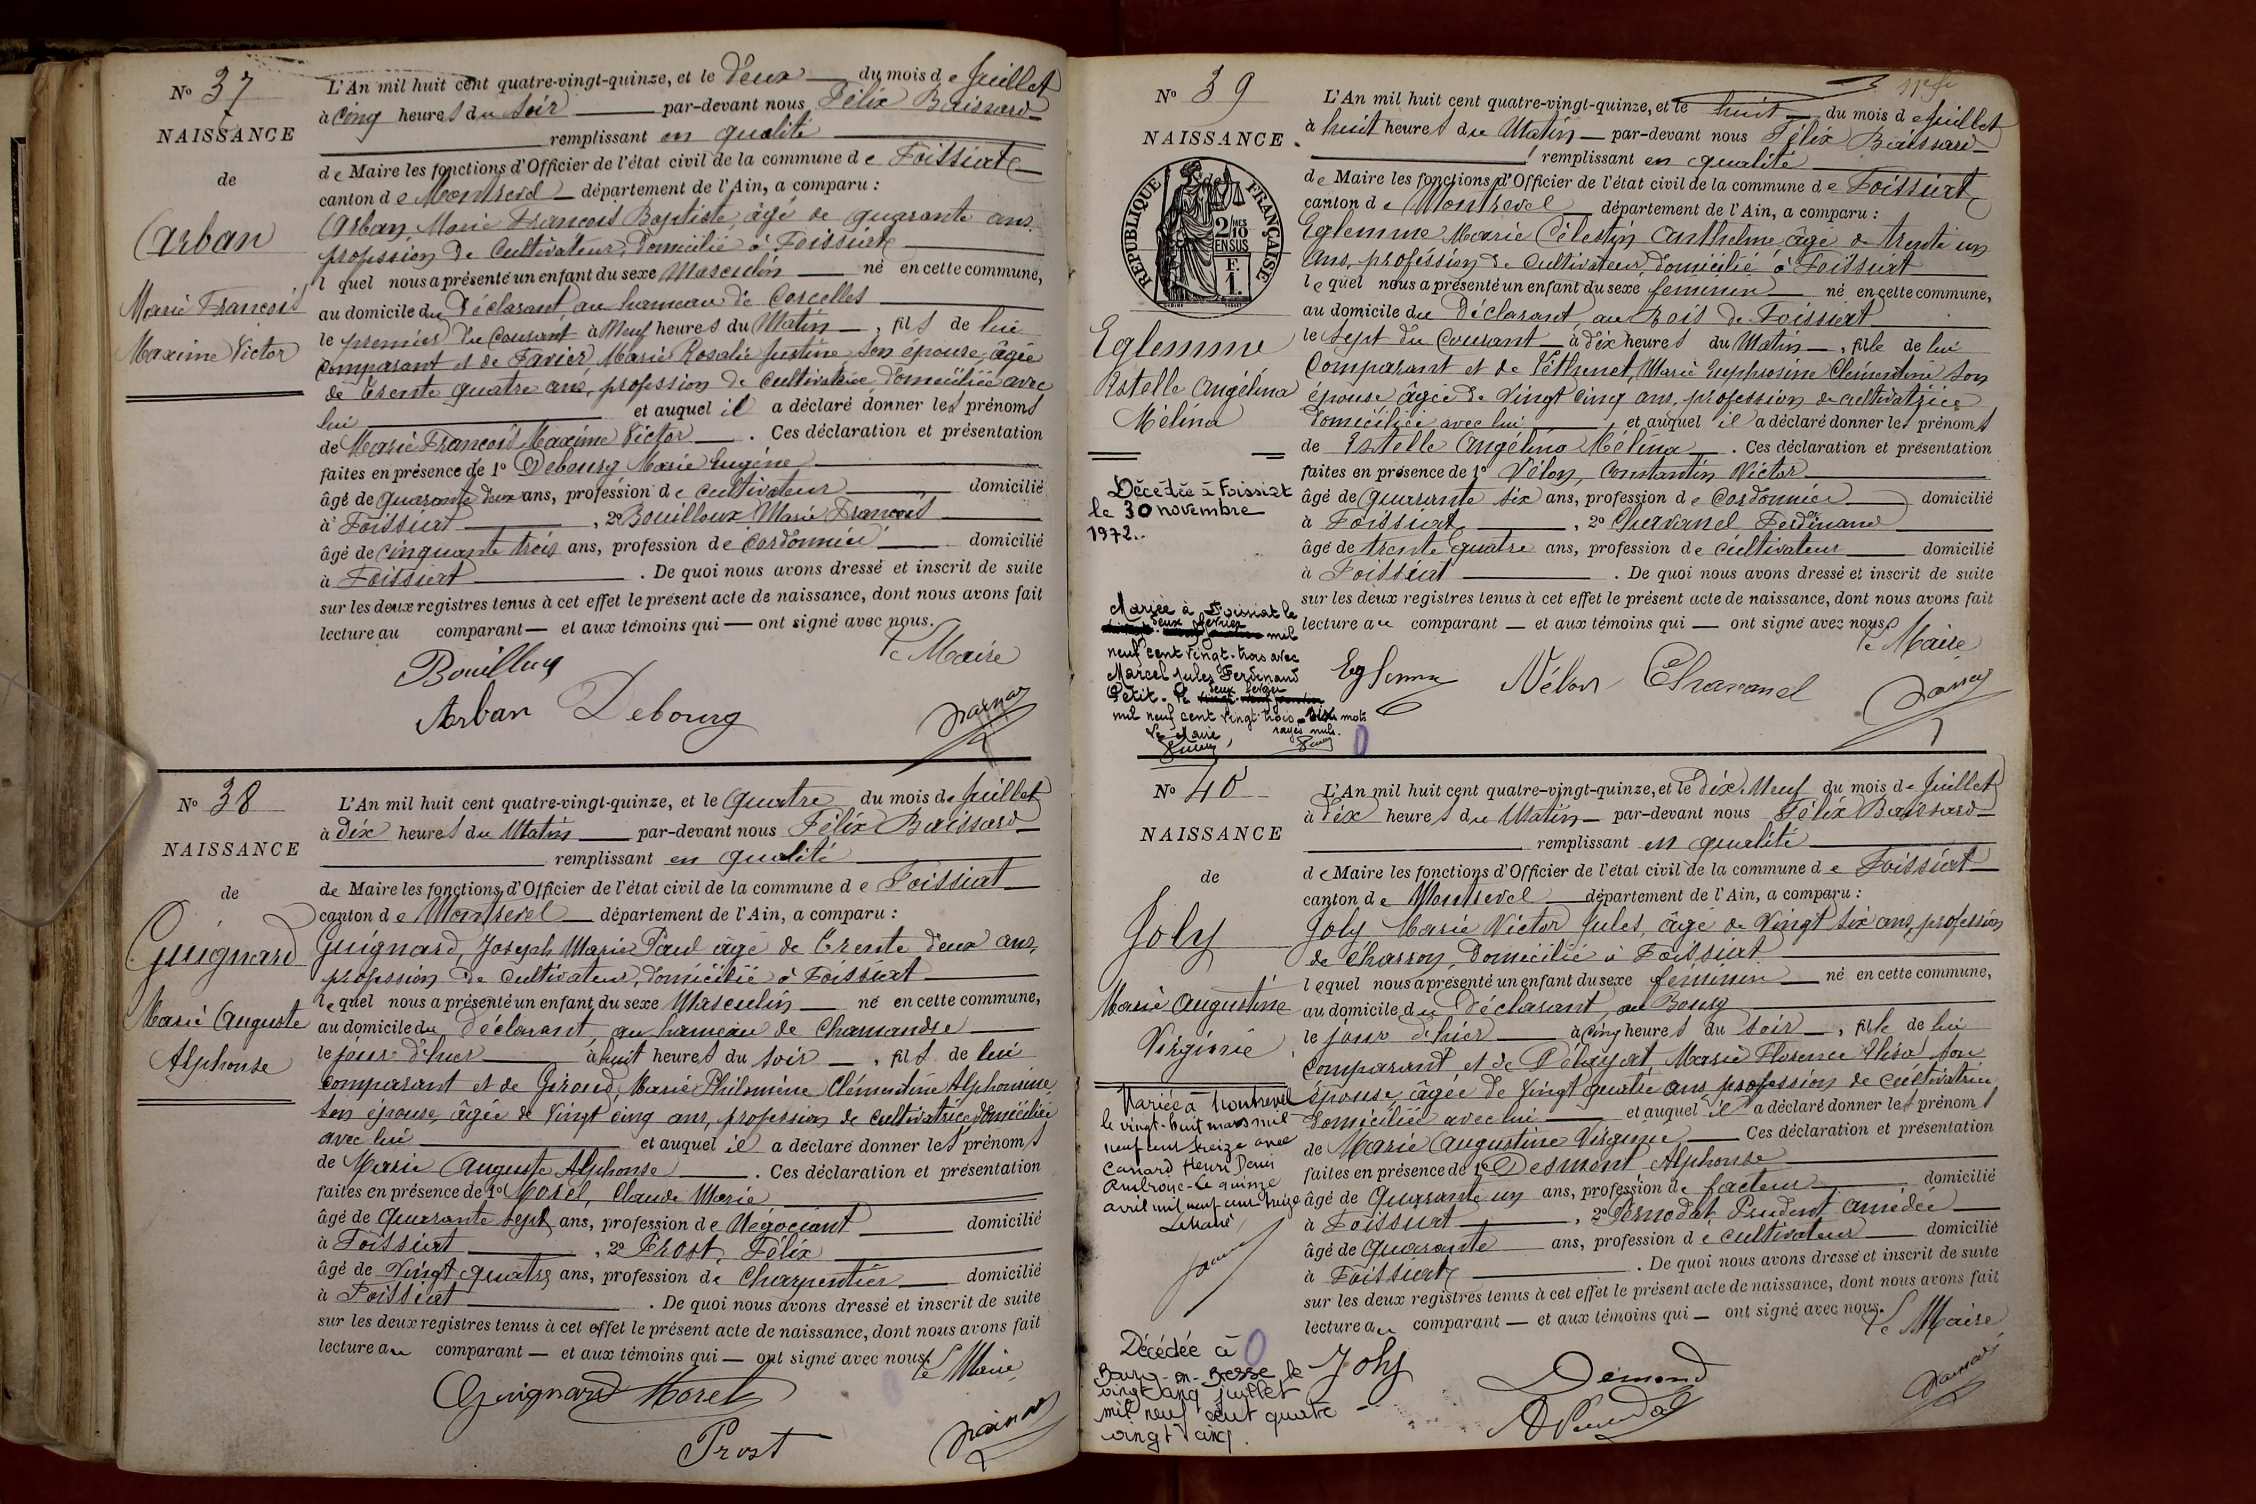 No 37
NAISSANCE
de
Carban
Marie François
Maxime Victor
L'An mil huit cent quatre-vingt-quinze, et le deux du mois de Juillet
à cinq heures du soir par-devant nous Félix Baissard
remplissant en qualité
de Maire les fonctions d'Officier de l'état civil de la commune de Foissiat
canton de Montrevel département de l'Ain, a comparu :
Carban, Marie François Baptiste, âgé de quarante ans,
profession de cultivateur, domicilié à Foissiat
l quel nous a présenté un enfant du sexe Masculin né en cette commune,
au domicile du Déclarant, au hameau de Corcelles
le premier du courant à Neuf heures du Matin, fils de lui
comparant et de Favier, Marie Rosalie Justine son épouse, âgée
de trente quatre ans, profession de cultivatrice domiciliée avec
lui et auquel il a déclaré donner les prénoms
de Marie François Maxime Victor. Ces déclaration et présentation
faites en présence de 1o Debourg Marie Eugène
âgé de quarante deux ans, profession de cultivateur domicilié
à Foissiat, 2o Bouilloux Marie François
âgé de cinquante trois ans, profession de cordonnier domicilié
à Foissiat. De quoi nous avons dressé et inscrit de suite
sur les deux registres tenus à cet effet le présent acte de naissance, dont nous avons fait
lecture au comparant — et aux témoins qui — ont signé avec nous.
Le Maire
Arban Debourg
No 38
NAISSANCE
de
Guignard
Marie Auguste
Alphonse
L'An mil huit cent quatre-vingt-quinze, et le quatre du mois de Juillet
à dix heures du Matin par-devant nous Félix Baissard
remplissant en qualité
de Maire les fonctions d'Officier de l'état civil de la commune de Foissiat
canton de Montrevel département de l'Ain, a comparu :
Guignard, Joseph Marie Paul âgé de trente deux ans,
profession de cultivateur, domicilié à Foissiat
lequel nous a présenté un enfant du sexe Masculin né en cette commune,
au domicile du Déclarant, au hameau de Chamandre
le jour d'hier à huit heures du soir, fils de lui
comparant et de Giroud, Marie Philomène Clémentine Alphonsine
son épouse, âgée de vingt cinq ans, profession de cultivatrice domiciliée
avec lui et auquel il a déclaré donner les prénoms
de Marie Auguste Alphonse. Ces déclaration et présentation
faites en présence de 1o Morel, Claude Marie
âgé de quarante sept ans, profession de Négociant domicilié
à Foissiat, 2o Prost, Félix
âgé de vingt quatre ans, profession de charpentier domicilié
à Foissiat. De quoi nous avons dressé et inscrit de suite
sur les deux registres tenus à cet effet le présent acte de naissance, dont nous avons fait
lecture au comparant — et aux témoins qui — ont signé avec nous.
Le Maire
Guignard Morel
Prost
No 39
NAISSANCE
de
RÉPUBLIQUE FRANÇAISE
2/10 EN SUS
F. 1.
Eglemme
Estelle Angélina
Mélina
Décédée à Foissiat
le 30 novembre
1972.
Mariée à Foissiat le
deux février
mil
neuf cent vingt-trois avec
Marcel Jules Ferdinand
Petit. Le
deux février
mil neuf cent vingt-trois. mots
Le Maire rayés nuls.
L'An mil huit cent quatre-vingt-quinze, et le huit du mois de Juillet
à huit heures du Matin par-devant nous Félix Baissard
remplissant en qualité
de Maire les fonctions d'Officier de l'état civil de la commune de Foissiat
canton de Montrevel département de l'Ain, a comparu :
Eglemme Marie Célestin Anthelme, âgé de trente un
ans, profession de cultivateur, domicilié à Foissiat
lequel nous a présenté un enfant du sexe féminin né en cette commune,
au domicile du Déclarant, au Bois de Foissiat
le sept du courant à dix heures du Matin, fille de lui
comparant et de Péthenet, Marie Euphrosine Clémentine son
épouse âgée de vingt cinq ans, profession de cultivatrice
domiciliée avec lui, et auquel il a déclaré donner les prénoms
de Estelle Angélina Mélina. Ces déclaration et présentation
faites en présence de 1o Vélon, Constantin Victor
âgé de quarante six ans, profession de cordonnier domicilié
à Foissiat, 2o Chavanel Ferdinand
âgé de trente quatre ans, profession de cultivateur domicilié
à Foissiat. De quoi nous avons dressé et inscrit de suite
sur les deux registres tenus à cet effet le présent acte de naissance, dont nous avons fait
lecture au comparant — et aux témoins qui — ont signé avec nous.
Le Maire
Eglemme Vélon Chavanel
No 40
NAISSANCE
de
Joly
Marie Augustine
Virginie
Mariée à Montrevel
le vingt-huit mars mil
neuf cent treize avec
Canard Henri Denis
Ambroise. Le quinze
avril mil neuf cent treize
Le Maire,
Décédée à
Bourg-en-Bresse le
vingt cinq juillet
mil neuf cent quatre
vingt cinq.
L'An mil huit cent quatre-vingt-quinze, et le dix Neuf du mois de Juillet
à dix heures du Matin par-devant nous Félix Baissard
remplissant en qualité
de Maire les fonctions d'Officier de l'état civil de la commune de Foissiat
canton de Montrevel département de l'Ain, a comparu :
Joly Marie Victor Jules, âgé de vingt six ans, profession
de charron, domicilié à Foissiat
lequel nous a présenté un enfant du sexe féminin né en cette commune,
au domicile du Déclarant, au Bourg
le jour d'hier à cinq heures du soir, fille de lui
comparant et de Marie Florence Elisa son
épouse, âgée de vingt quatre ans profession de cultivatrice,
domiciliée avec lui et auquel il a déclaré donner les prénoms
de Marie Augustine Virginie Ces déclaration et présentation
faites en présence de 1o Desmont Alphonse
âgé de quarante un ans, profession de facteur domicilié
à Foissiat, 2o Pernodat Prudent Amédée
âgé de quarante ans, profession de cultivateur domicilié
à Foissiat. De quoi nous avons dressé et inscrit de suite
sur les deux registres tenus à cet effet le présent acte de naissance, dont nous avons fait
lecture au comparant — et aux témoins qui — ont signé avec nous.
Le Maire
Joly Demond